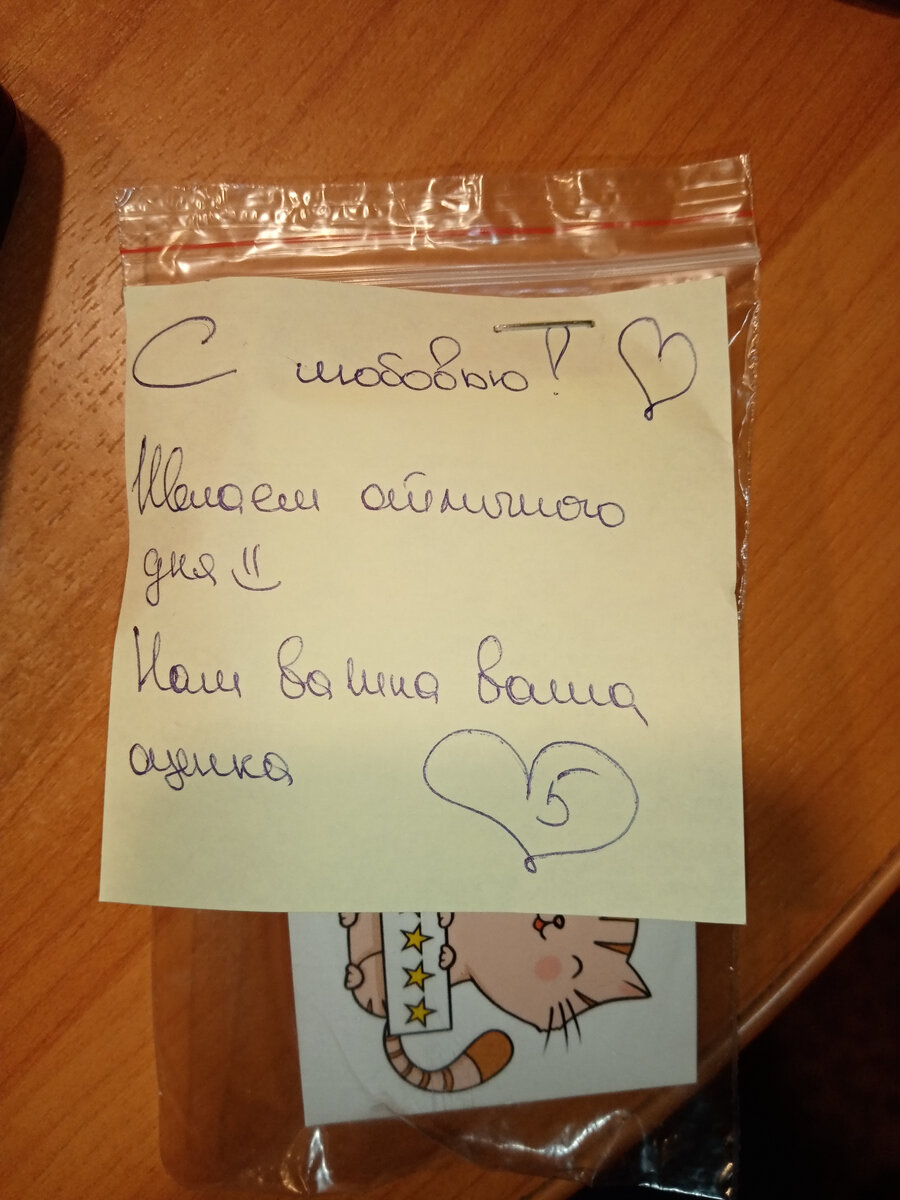 С любовью!
Желаем отличного
дня
Нам важна ваша
оценка 5